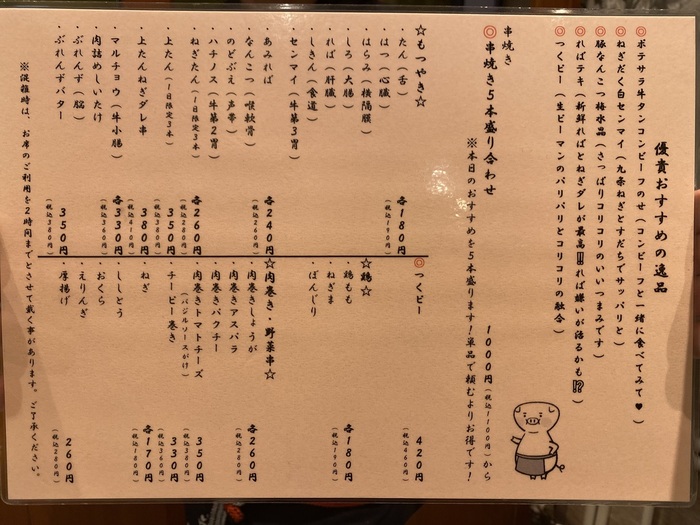 優貴おすすめの逸品
◎ポテサラ牛タンコンビーフのせ（コンビーフと一緒に食べてみて♥）
◎ねぎだく白センマイ（九条ねぎとすだちでサッパリと）
◎豚なんこつ梅水晶（さっぱりコリコリのいいつまみです）
◎ればテキ（新鮮ればとねぎダレが最高!!れば嫌いが治るかも!?）
◎つくピー（生ピーマンのパリパリとコリコリの融合）
串焼き
◎串焼き5本盛り合わせ 1000円（税込1100円）から
※本日のおすすめを5本盛ります！単品で頼むよりお得です！
☆もつやき☆
・たん（舌）
・はつ（心臓） 各180円（税込190円）
・はらみ（横隔膜）
・しろ（大腸）
・れば（肝臓）
・しきん（食道）
・センマイ（牛第3胃）
・あみれば 各240円（税込260円）
・なんこつ（喉軟骨）
・のどぶえ（声帯）
・ハチノス（牛第2胃）
・ねぎたん（1日限定3本） 各260円（税込280円）
・上たん（1日限定3本） 350円（税込380円）
・上たんねぎダレ串 380円（税込410円）
・マルチョウ（牛小腸） 各330円（税込360円）
・肉詰めしいたけ
・ぶれんず（脳）
・ぶれんずバター 350円（税込380円）
◎つくピー 420円（税込460円）
☆鶏☆
・鶏もも 各180円（税込190円）
・ねぎま
・ぼんじり
☆肉巻き・野菜串☆
・肉巻きしょうが 各260円（税込280円）
・肉巻きアスパラ
・肉巻きパクチー
・肉巻きトマトチーズ（バジルソースがけ） 350円（税込380円）
・チーピー巻き 330円（税込360円）
・ねぎ 各170円（税込180円）
・ししとう
・おくら
・えりんぎ
・厚揚げ 260円（税込280円）
※混雑時は、お席のご利用を2時間までとさせて戴く事があります。ご了承ください。